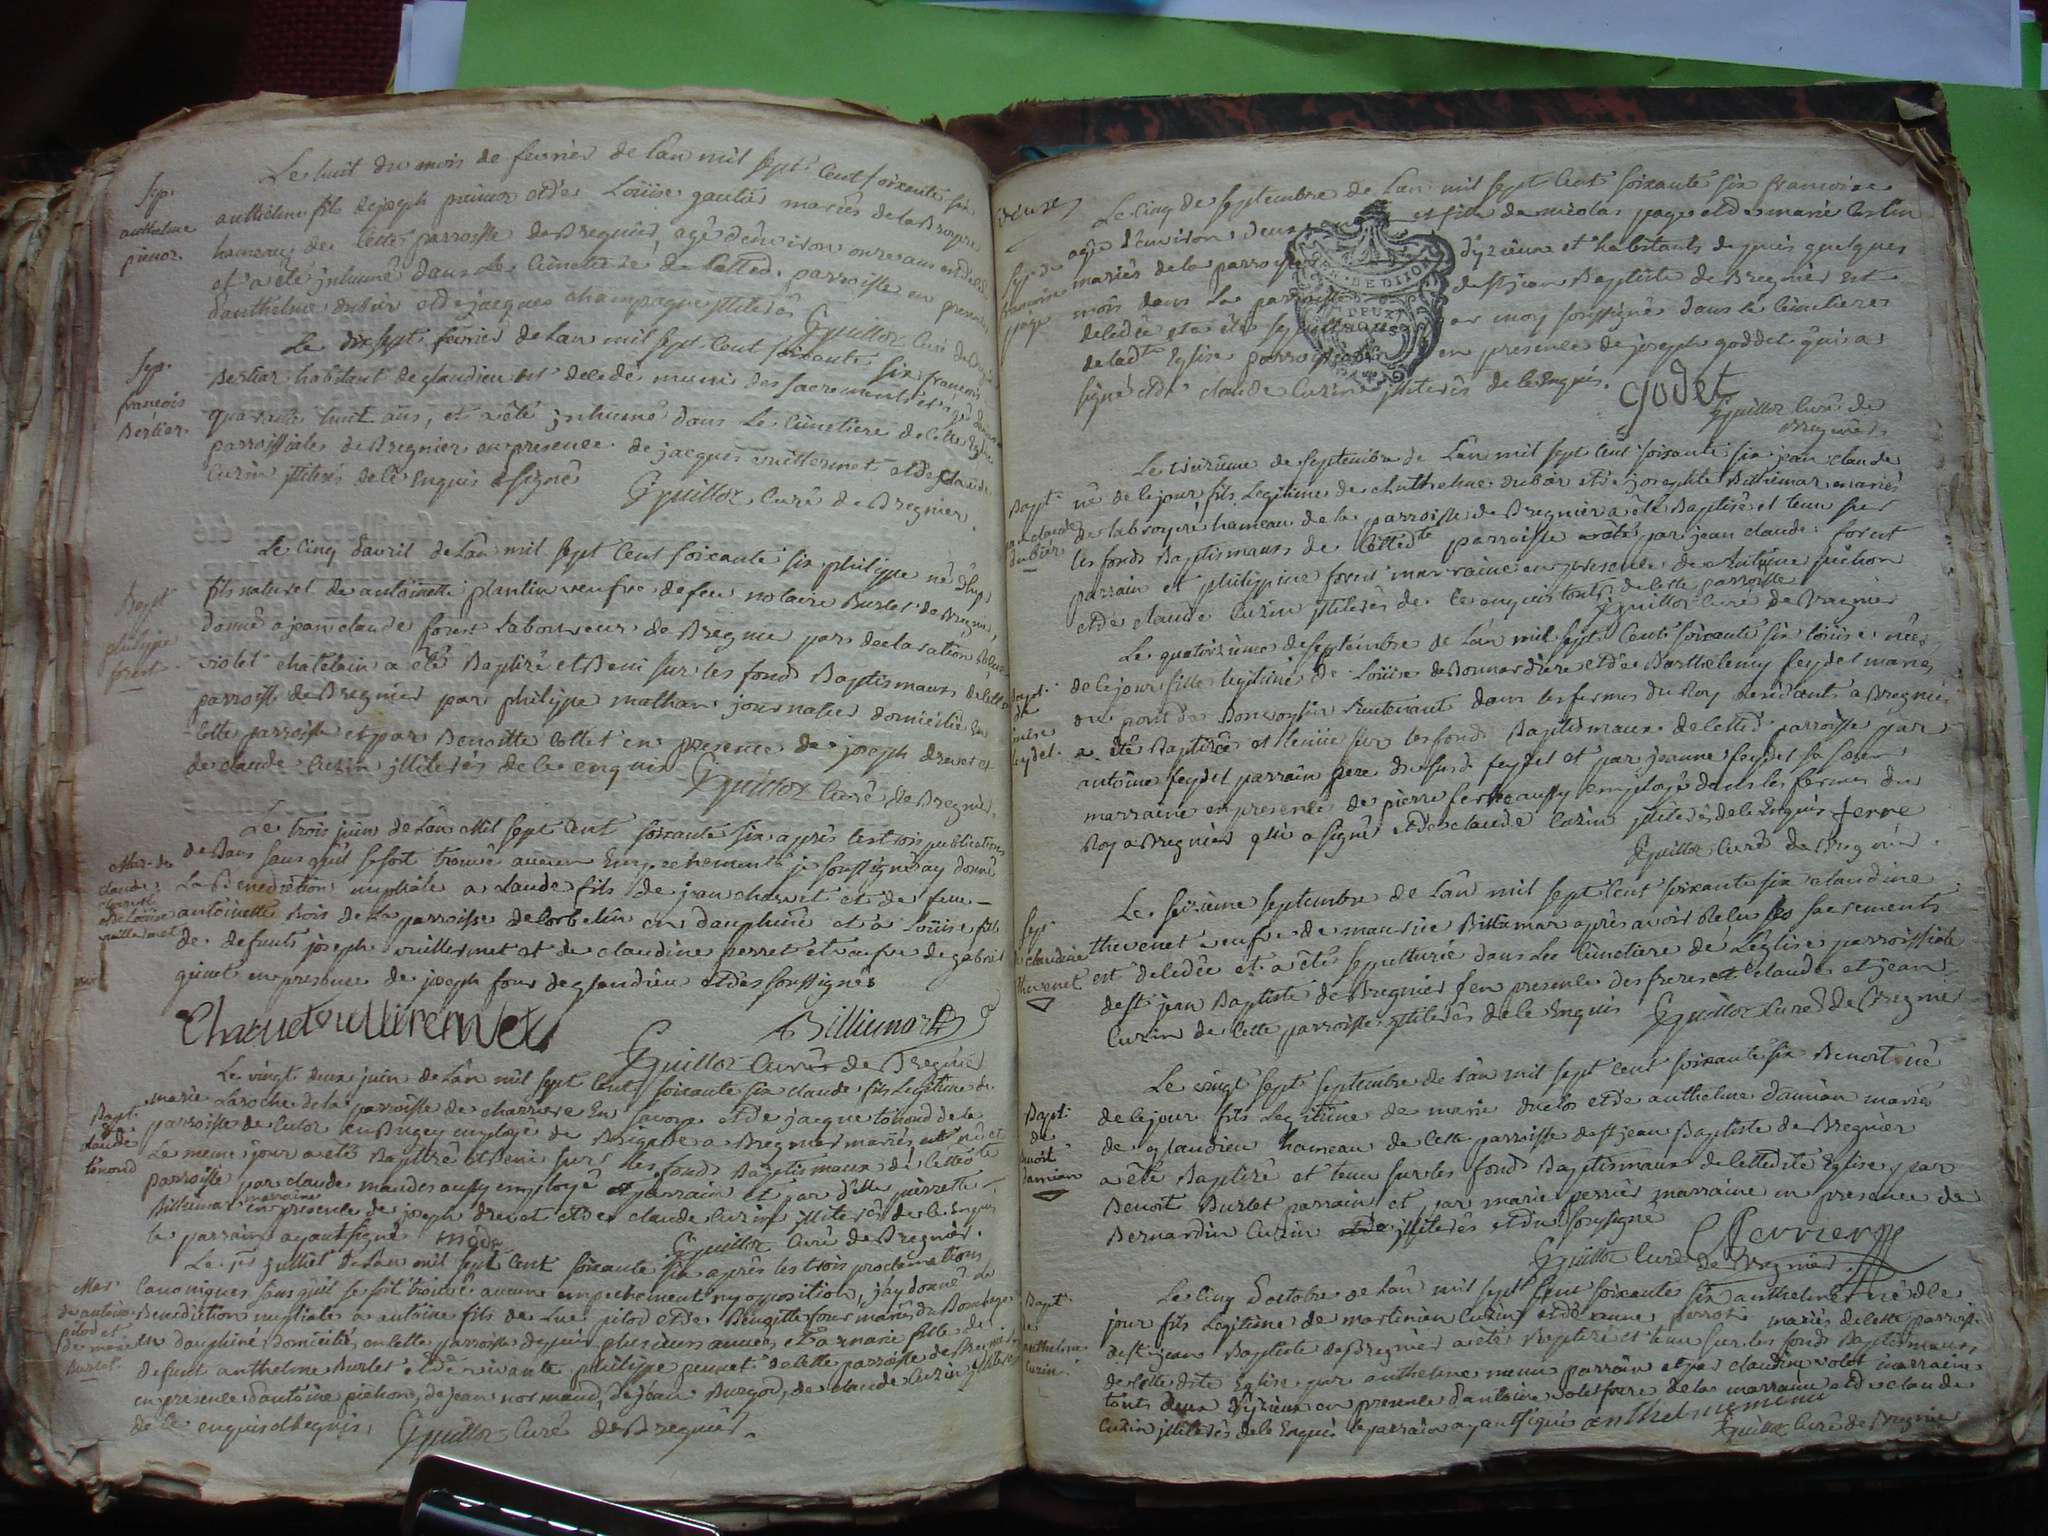 Sep.
anthelme
pienoz.
Le huit du mois de fevrier de l'an mil sept cent soixante six
anthelme fils de joseph pienoz et de Loüise gautier mariés de la Bruyere
hameau de cette parroisse de Bregnier, agé d'environ onze ans
et a été jnhumé dans Le Cimetiere de lad. parroisse en presence
d'anthelme dubois et de jacques champagne jllitérés
Guilloz Curé de
Sep.
francois
Bertier.
Le dix sept fevrier de L'an mil sept Cent soixante six francois
Bertier habitant de glandieu est decedé muni des sacrements et
quarante huit ans, et a été jnhumé dans Le Cimetiere de cette Eglise
parroissiale de Bregnier en presence de jacques vuillermet et de Claude
Cuzin jllitérés de ce Enquis signé
Guilloz Curé de Bregnier.
Bapt
philippe
forest.
Le cinq d'avril de L'an mil sept Cent soixante six philippe né d'huy
fils naturel de antoinette plantin veufve de feu notaire Burlet de Bregnier,
donné a jean claude forest Laboureur de Bregnie par declaration
violet chatelain a été Baptizé et Beni sur les fonds Baptismaux de cette
parroisse de Bregnier par philippe mathan journalier domicilié en
cette parroisse et par Benoitte Collet en presence de joseph drevet et
de claude Cuzin jllitérés de ce enquis
Guilloz Curé de Bregnier.
Mar. de
claude
charvet
et de Loüise
vuillermet
Le trois juin de L'an Mil sept Cent soixante six après Les trois publications
de Bans sans qu'il se soit trouvé aucun Empechement je soussigné ay donné
La Benediction nuptiale a claude fils de jean charvet et de feue
antoinette Bois de La parroisse de Corbelin en dauphiné et a Loüise fille
de defunts joseph vuillermet et de claudine perret et veufve de gabriel
guinet en presence de joseph four de glandieu et des soussignés
Guilloz Curé de Bregnier
Bapt.
de
claude
tonond
Le vingt deux juin de L'an mil sept Cent soixante six claude fils Legitime de
marie Laroche de la parroisse de charriere En savoye et de jacque tonond de la
parroisse de Culoz en Bugey employé de Brigade a Bregnier mariés, né et
Le meme jour a été Baptizé et Beni sur les fonds Baptismaux de cette
parroisse par claude mandes aussy employé parrain et par d'lle pierrette
Billiemaz marraine en presence de joseph drevet et de claude Cuzin jllitérés de ce Enquis
le parrain ayant signé
Guilloz Curé de Bregnier.
Mar.
de antoine
pilod et
de marie
Burlet.
Le 1er juillet de L'an mil sept Cent soixante six après les trois proclamations
Canoniques sans qu'il se soit trouvé aucun empechement ny opposition, j'ay donné la
Benediction nuptiale a antoine fils de Luc pilod et de Benoitte four mariés du Bouchage
en dauphiné domicilié en cette parroisse depuis plusieurs années, et a marie fille de
defunt anthelme Burlet et de vivante philippe peuvet de cette parroisse de Bregnier
en presence d'antoine pichon, de jean normand, de jean Burgod, de claude Cuzin jllitérés
de ce enquis et Requis.
Guilloz Curé de Bregnier.
Sep. de
francoise
page
Le Cinq de septembre de L'an mil sept Cent soixante six francoise
agée d'environ deux fille de nicolas page et de marie Carlin
mariés de la parroisse d'yzieux et habitants depuis quelques
mois dans La parroisse de St jean Baptiste de Bregnier est
decedée et a été sepulturée par moy soussigné dans le cimetiere
de lad.te Eglise parroissiale en presence de joseph goddet qui a
signé et de claude Cuzin jllitérés de ce Enquis.
Godet
Guilloz Curé de
Bregnier.
Bapt.
jean claude
dubois
Le treizieme de septembre de L'an mil sept Cent soixante six jean claude
né de ce jour fils Legitime de anthelme dubois et de josephte Billiemaz mariés
de La bruyere hameau de la parroisse de Bregnier a été Baptizé et tenu sur
les fonds Baptismaux de cette d.te parroisse par jean claude forest
parrain et philippine forest marraine en presence de Antoine pichon
et de claude Cuzin jllitérés de ce enquis touts de cette parroisse
Guilloz Curé de Bregnier
Bapt.
de
Loüise
feydel.
Le quatorzieme de septembre de L'an mil sept Cent soixante six Loüise née
de ce jour fille Legitime de Loüise de Bonnardiere et de Barthelemy feydel mariés
du pont de Bonvoysin Lieutenant dans les fermes du Roy Residants a Bregnier
a été Baptizée et tenüe sur les fonds Baptismaux de cette d. parroisse par
antoine feydel parrain frere du susd. feydel et par jeanne feydel sa sœur
marraine en presence de pierre ferre aussy employé dans les fermes du
Roy a Bregnier qui a signé et de claude Cuzin jllitérés de ce Enquis ferre
Guilloz Curé de Bregnier.
Sep.
claudine
thevenet
Le seizieme septembre de L'an mil sept Cent soixante six claudine
thevenet veufve de maurice Billiemaz après avoir Receu les sacrements
est decedée et a été sepulturée dans Le Cimetiere de L'eglise parroissiale
de St jean Baptiste de Bregnier en presence des freres claude et jean
Cuzin de cette parroisse jllitérés de ce Enquis Guilloz Curé de Bregnier
Bapt.
de
Benoit
damian
Le vingt sept septembre de L'an mil sept Cent soixante six Benoit né
de ce jour fils Legitime de marie duclos et de anthelme damian mariés
de glandieu hameau de cette parroisse de St jean Baptiste de Bregnier
a été Baptizé et tenu sur les fonds Baptismaux de cette dite Eglise par
Benoit Burlet parrain et par marie perrier marraine en presence de
Bernardin Cuzin jllitérés et du soussigné
Perrier
Guilloz Curé de Bregnier.
Bapt.
de
anthelme
Cuzin.
Le Cinq d'octobre de L'an mil sept Cent soixante six anthelme né de ce
jour fils Legitime de martinian Cuzin et de anne perrot mariés de cette parroisse
de St jean Baptiste de Bregnier a été Baptizé et tenu sur les fonds Baptismaux
de cette dite Eglise par anthelme menu parrain et par claudine volot marraine
touts deux d'yzieux en presence d'antoine volot frere de la marraine et de claude
Cuzin jllitérés de ce Enquis le parrain ayant signé anthelme menu
Guilloz Curé de Bregnier